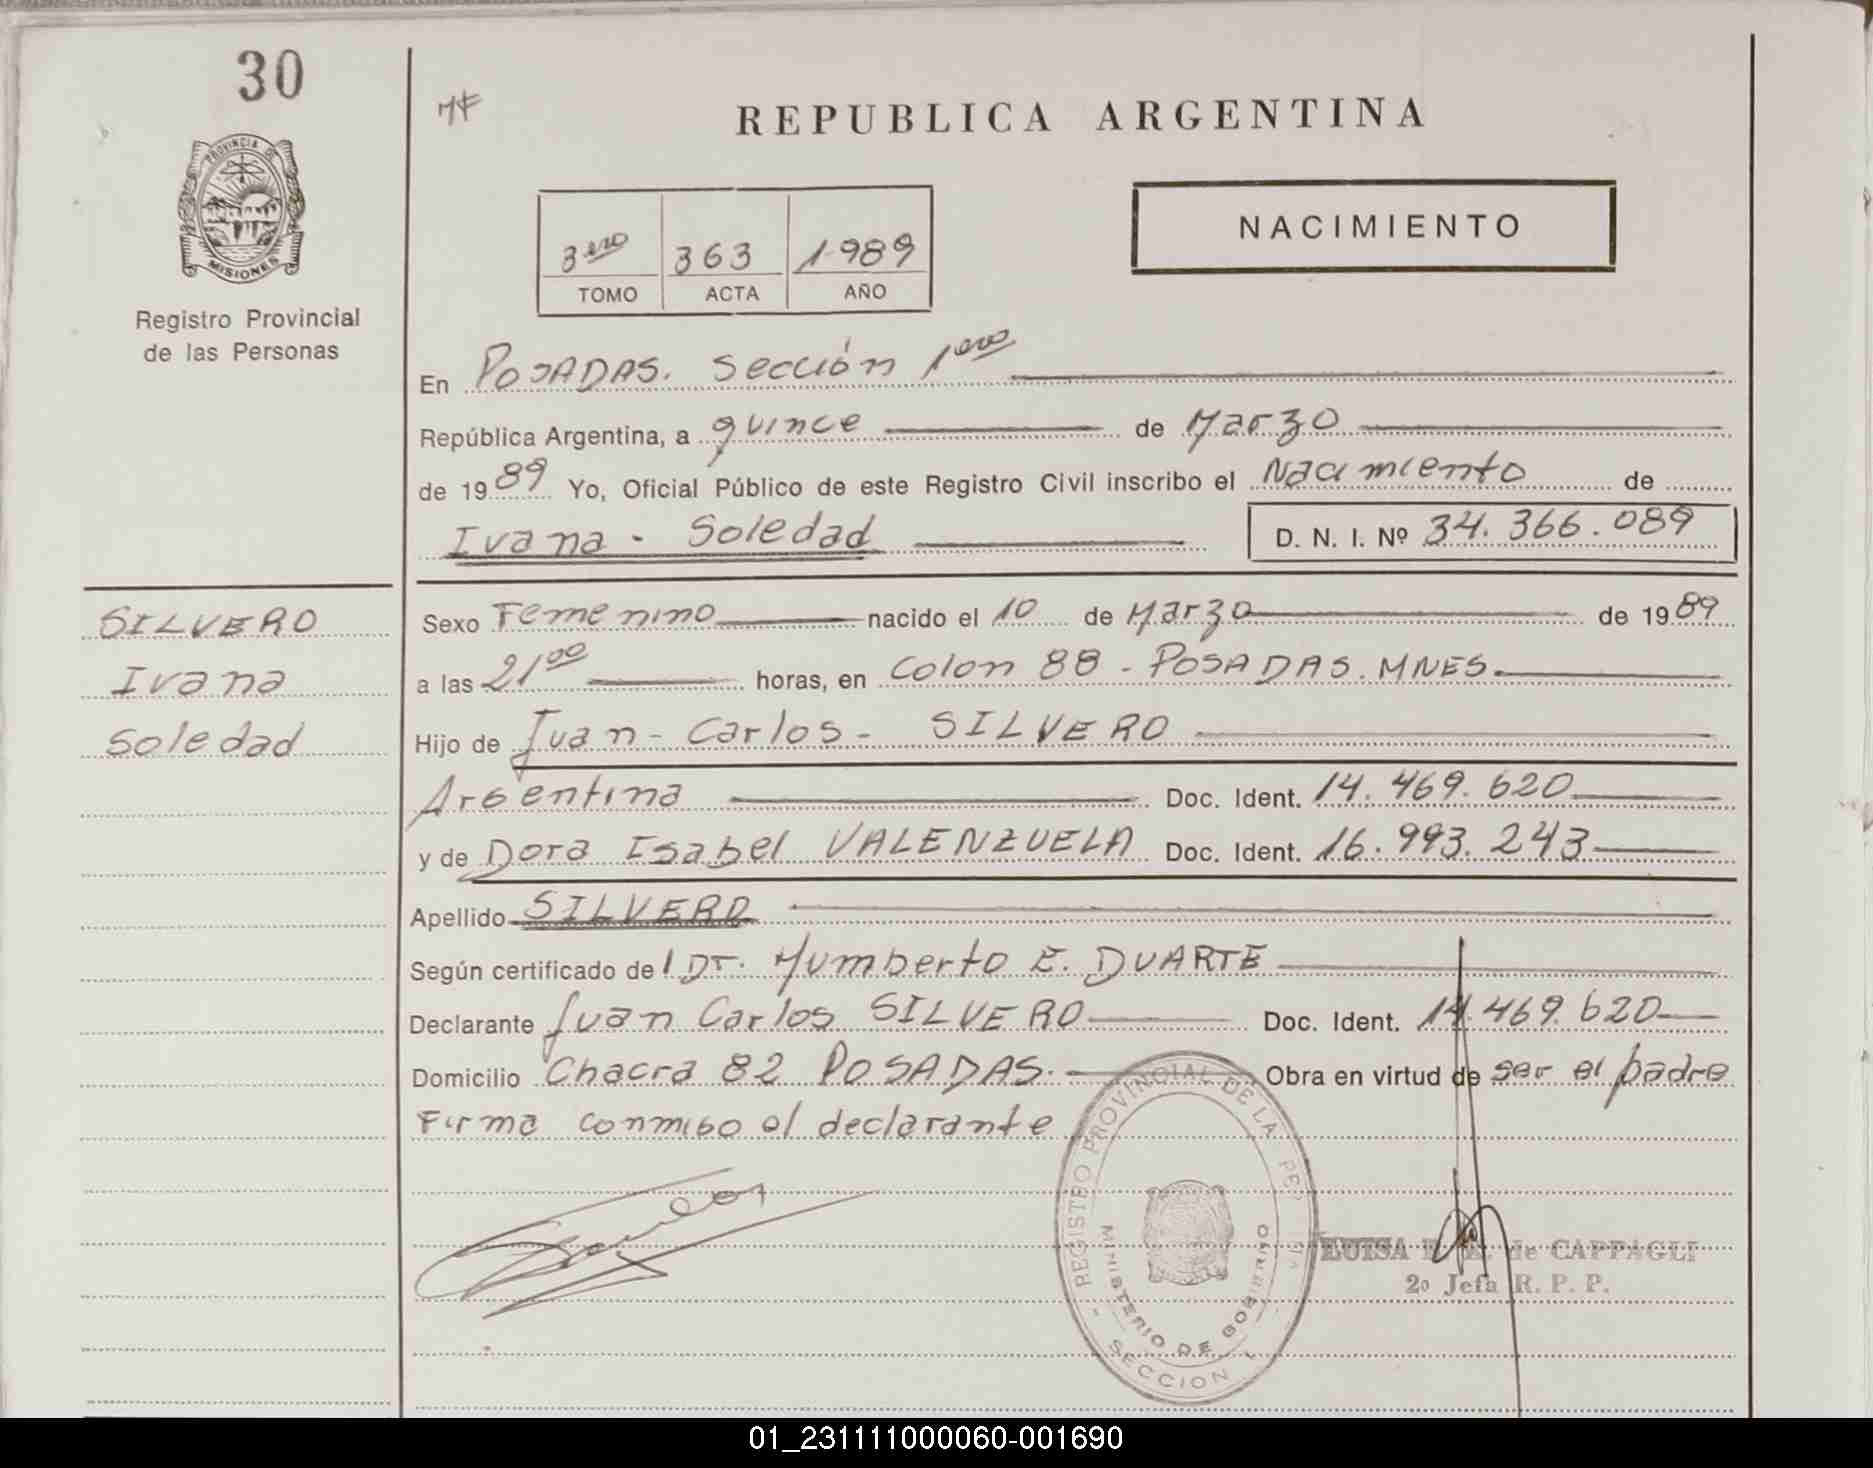 30
PROVINCIA DE
MISIONES
Registro Provincial
de las Personas
SILVERO
Ivana
Soledad
REPUBLICA ARGENTINA
3ero 363 1989
TOMO ACTA AÑO
NACIMIENTO
En POSADAS. Sección 1era
República Argentina, a quince de Marzo
de 1989 Yo, Oficial Público de este Registro Civil inscribo el Nacimiento de
Ivana - Soledad D. N. I. Nº 34.366.089
Sexo Femenino nacido el 10 de Marzo de 1989
a las 21 00 horas, en Colon 88 - POSADAS. MNES.
Hijo de Juan - Carlos - SILVERO
Argentina Doc. Ident. 14.469.620
y de Dora Isabel VALENZUELA Doc. Ident. 16.993.243
Apellido SILVERO
Según certificado de l DT. Humberto E. DUARTE
Declarante Juan Carlos SILVERO Doc. Ident. 14.469.620
Domicilio Chacra 82 POSADAS. Obra en virtud de ser el padre
Firma conmigo el declarante
REGISTRO PROVINCIAL DE LA PE
MINISTERIO DE GOBIERNO
SECCION 1
LUISA de CAPPAGLI
2º Jefa R. P. P.
01_231111000060-001690